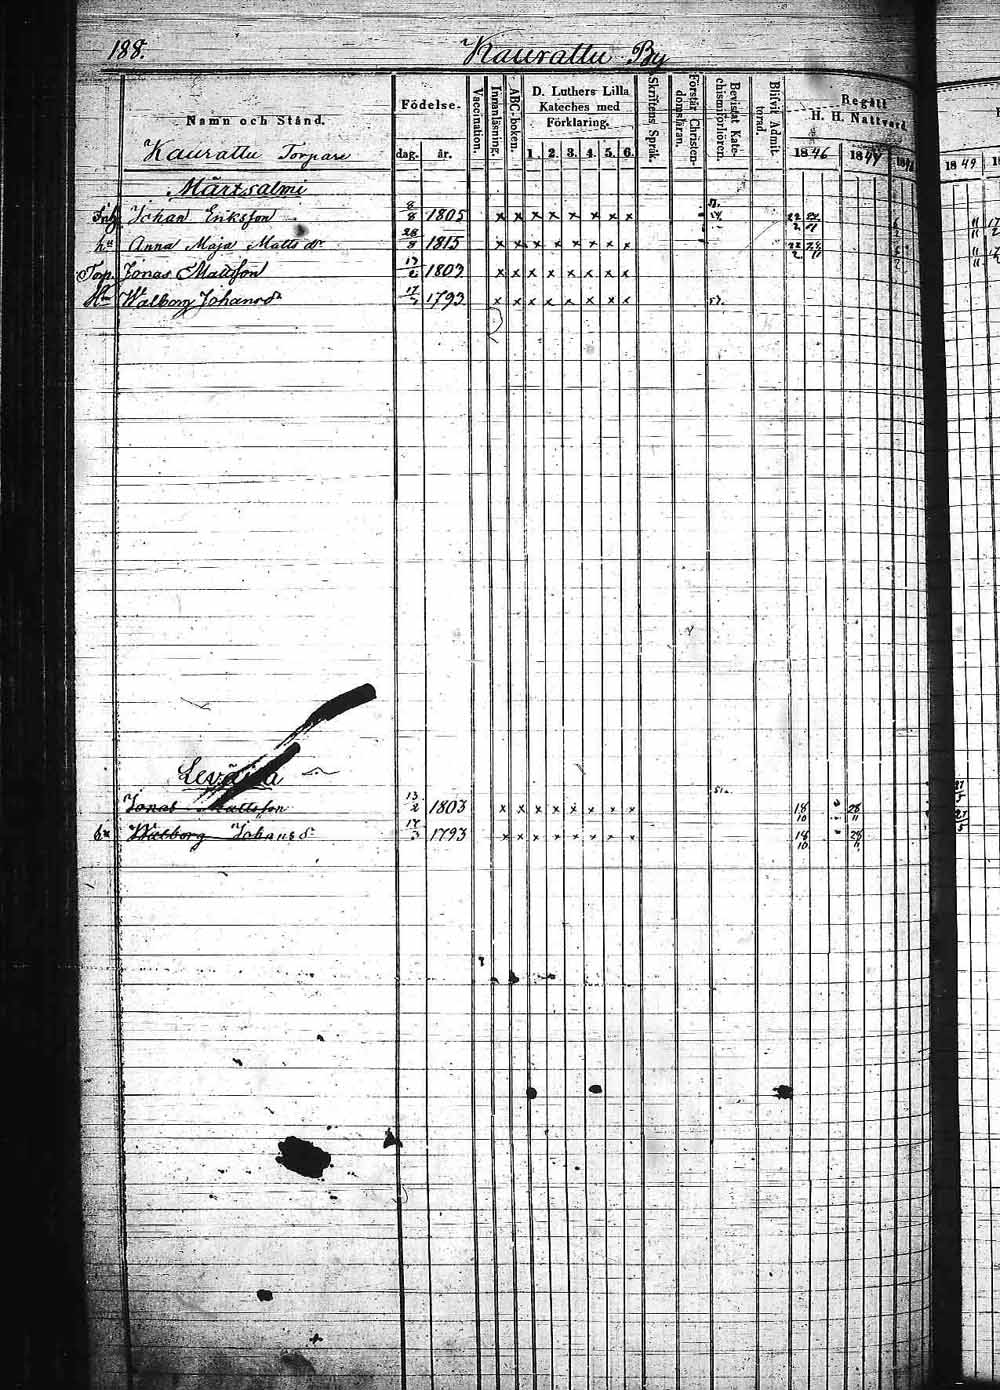 188.
Kaurattu By
Namn och Stånd.
Födelse-
dag. år.
Vaccination.
Innanläsning.
ABC-boken.
D. Luthers Lilla
Kateches med
Förklaring.
1. 2. 3. 4. 5. 6.
Skriftens Språk.
Förstår Christen-
domsläran.
Bevistat Kate-
chismiförhören.
Blifvit Admit-
terad.
Begått
H. H. Nattvard
1846 1847 1849
Kaurattu Torpare
Märtsalmi
Johan Eriksson 8/8 1805 x x x x x x x x
Anna Maja Matts dr 1815 x x x x x x x x
Torp. Jonas Mattsson 13/2 1803 x x x x x x x x
Walborg Johansdr 17/3 1793 x x x x x x x x
Jonas Mattsson 13/2 1803 x x x x x x x x 18/10 28/11
Walborg Johansdr 17/3 1793 x x x x x x x x 18/10 28/11